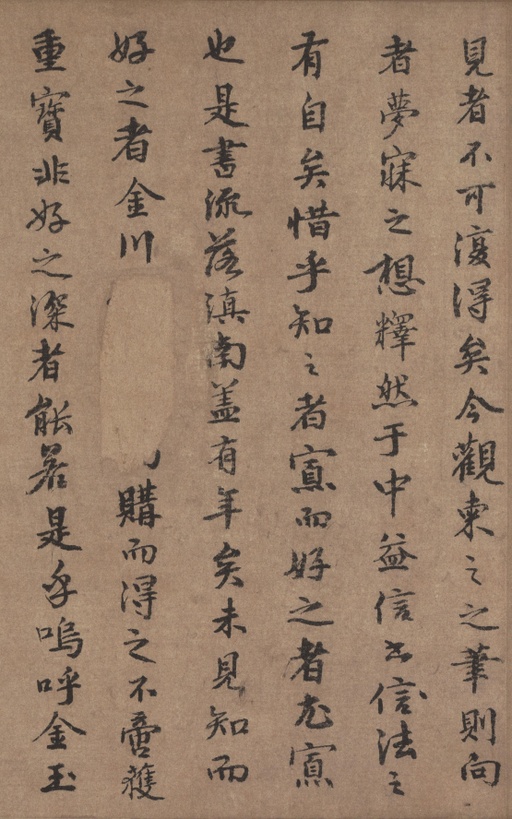 見者不可復得矣今觀柬之之筆則向
者夢寐之想釋然于中益信信法之
有自矣惜乎知之者寡而好之者尤寡
也是書流落滇南蓋有年矣未見知而
好之者金川購而得之不啻獲
重寶非好之深者能若是乎嗚呼金玉